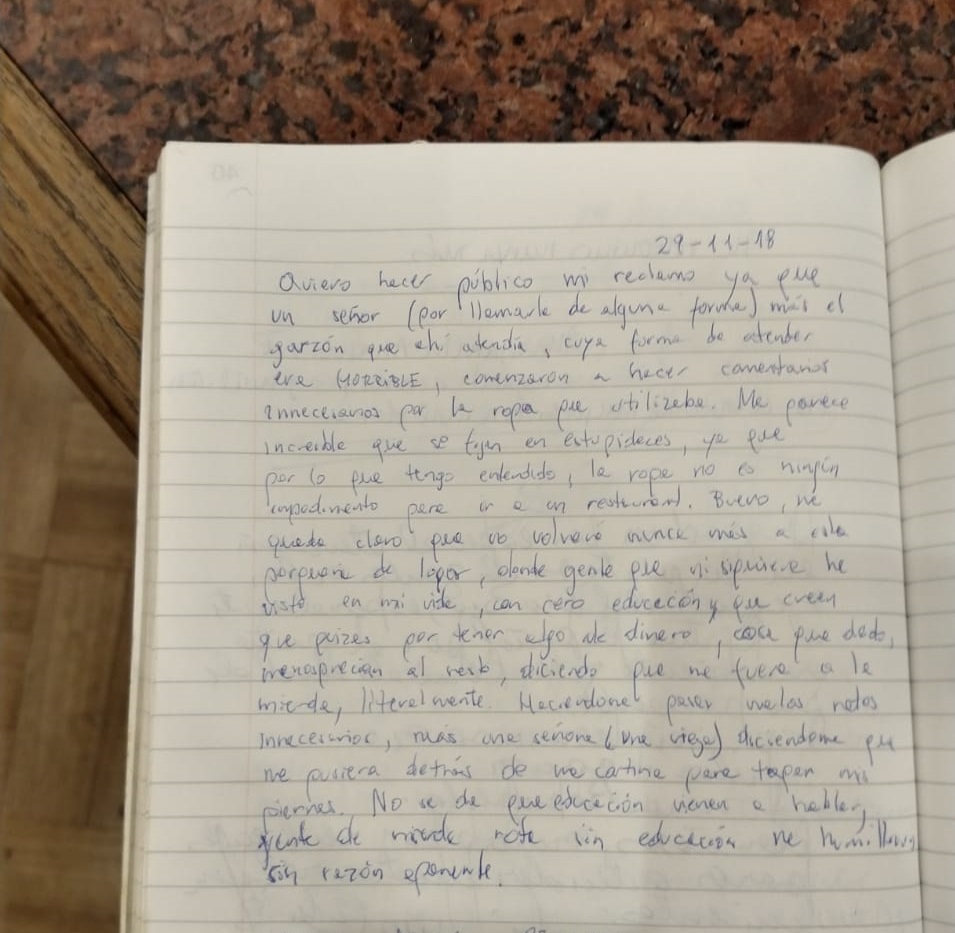 29-11-18
Quiero hacer público mi reclamo ya que
un señor (por llamarle de alguna forma) más el
garzón que ahí atendía, cuya forma de atender
era HORRIBLE, comenzaron a hacer comentarios
innecesarios por la ropa que utilizaba. Me parece
increíble que se fijen en estupideces, ya que
por lo que tengo entendido, la ropa no es ningún
impedimento para ir a un restaurant. Bueno, me
queda claro que no volveré nunca más a esta
porquería de lugar, donde gente que ni siquiera he
visto en mi vida, con cero educación y que creen
que quizes por tener algo de dinero, cosa que dudo,
menosprecian al resto, diciendo que me fuera a la
mierda, literalmente. Haciendome pasar malos ratos
innecesarios, más una señora (una vieja) diciendome que
me pusiera detrás de una cortina para tapar mis
piernas. No se de que educación vienen a hablar,
gente de mierda rota sin educación me humillaron
sin razón aparente.